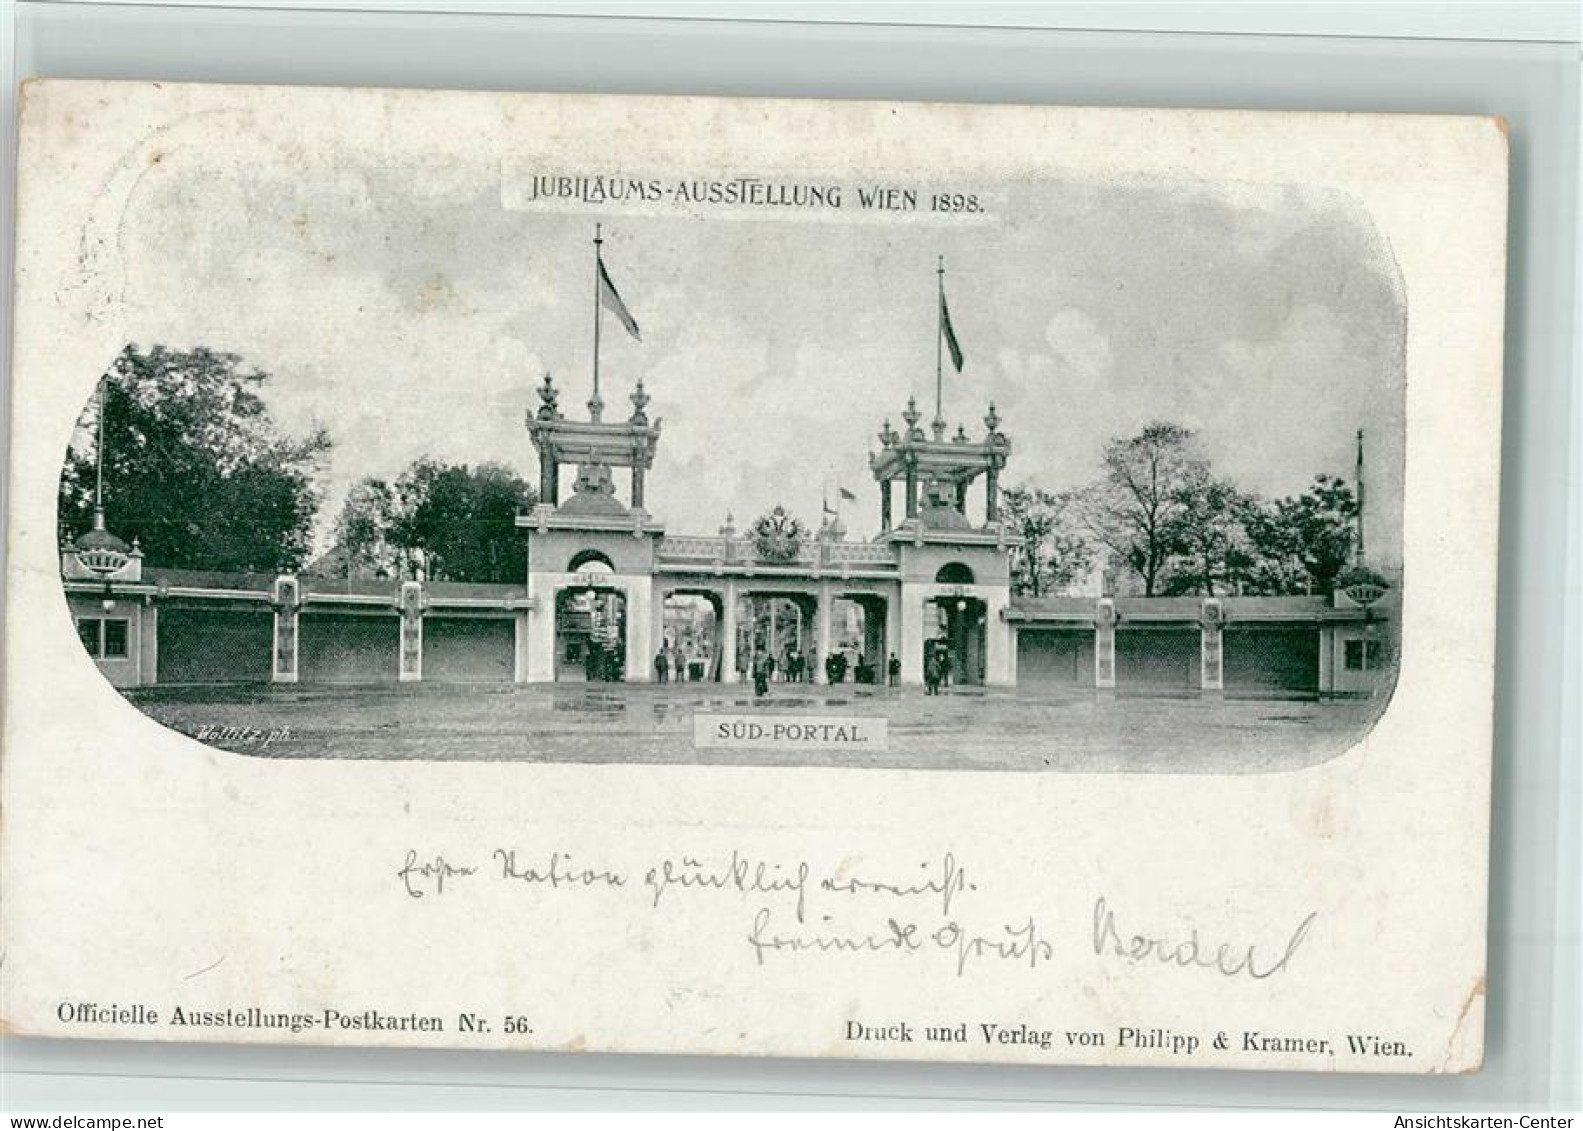 JUBILÄUMS-AUSSTELLUNG WIEN 1898.
KASSA
Wollitz ph.
SÜD-PORTAL.
Erste Station glücklich erreicht.
Gruß
Officielle Ausstellungs-Postkarten Nr. 56.
Druck und Verlag von Philipp & Kramer, Wien.
www.delcampe.net
Ansichtskarten-Center